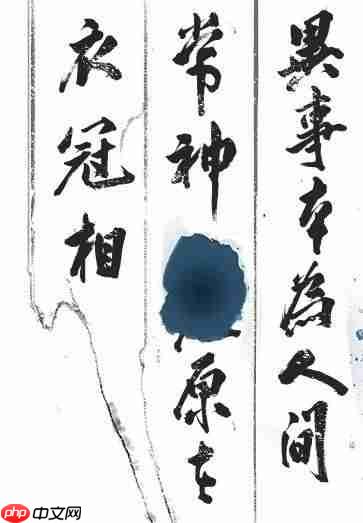 異事本為人間
常神原在
衣冠相
php中文网